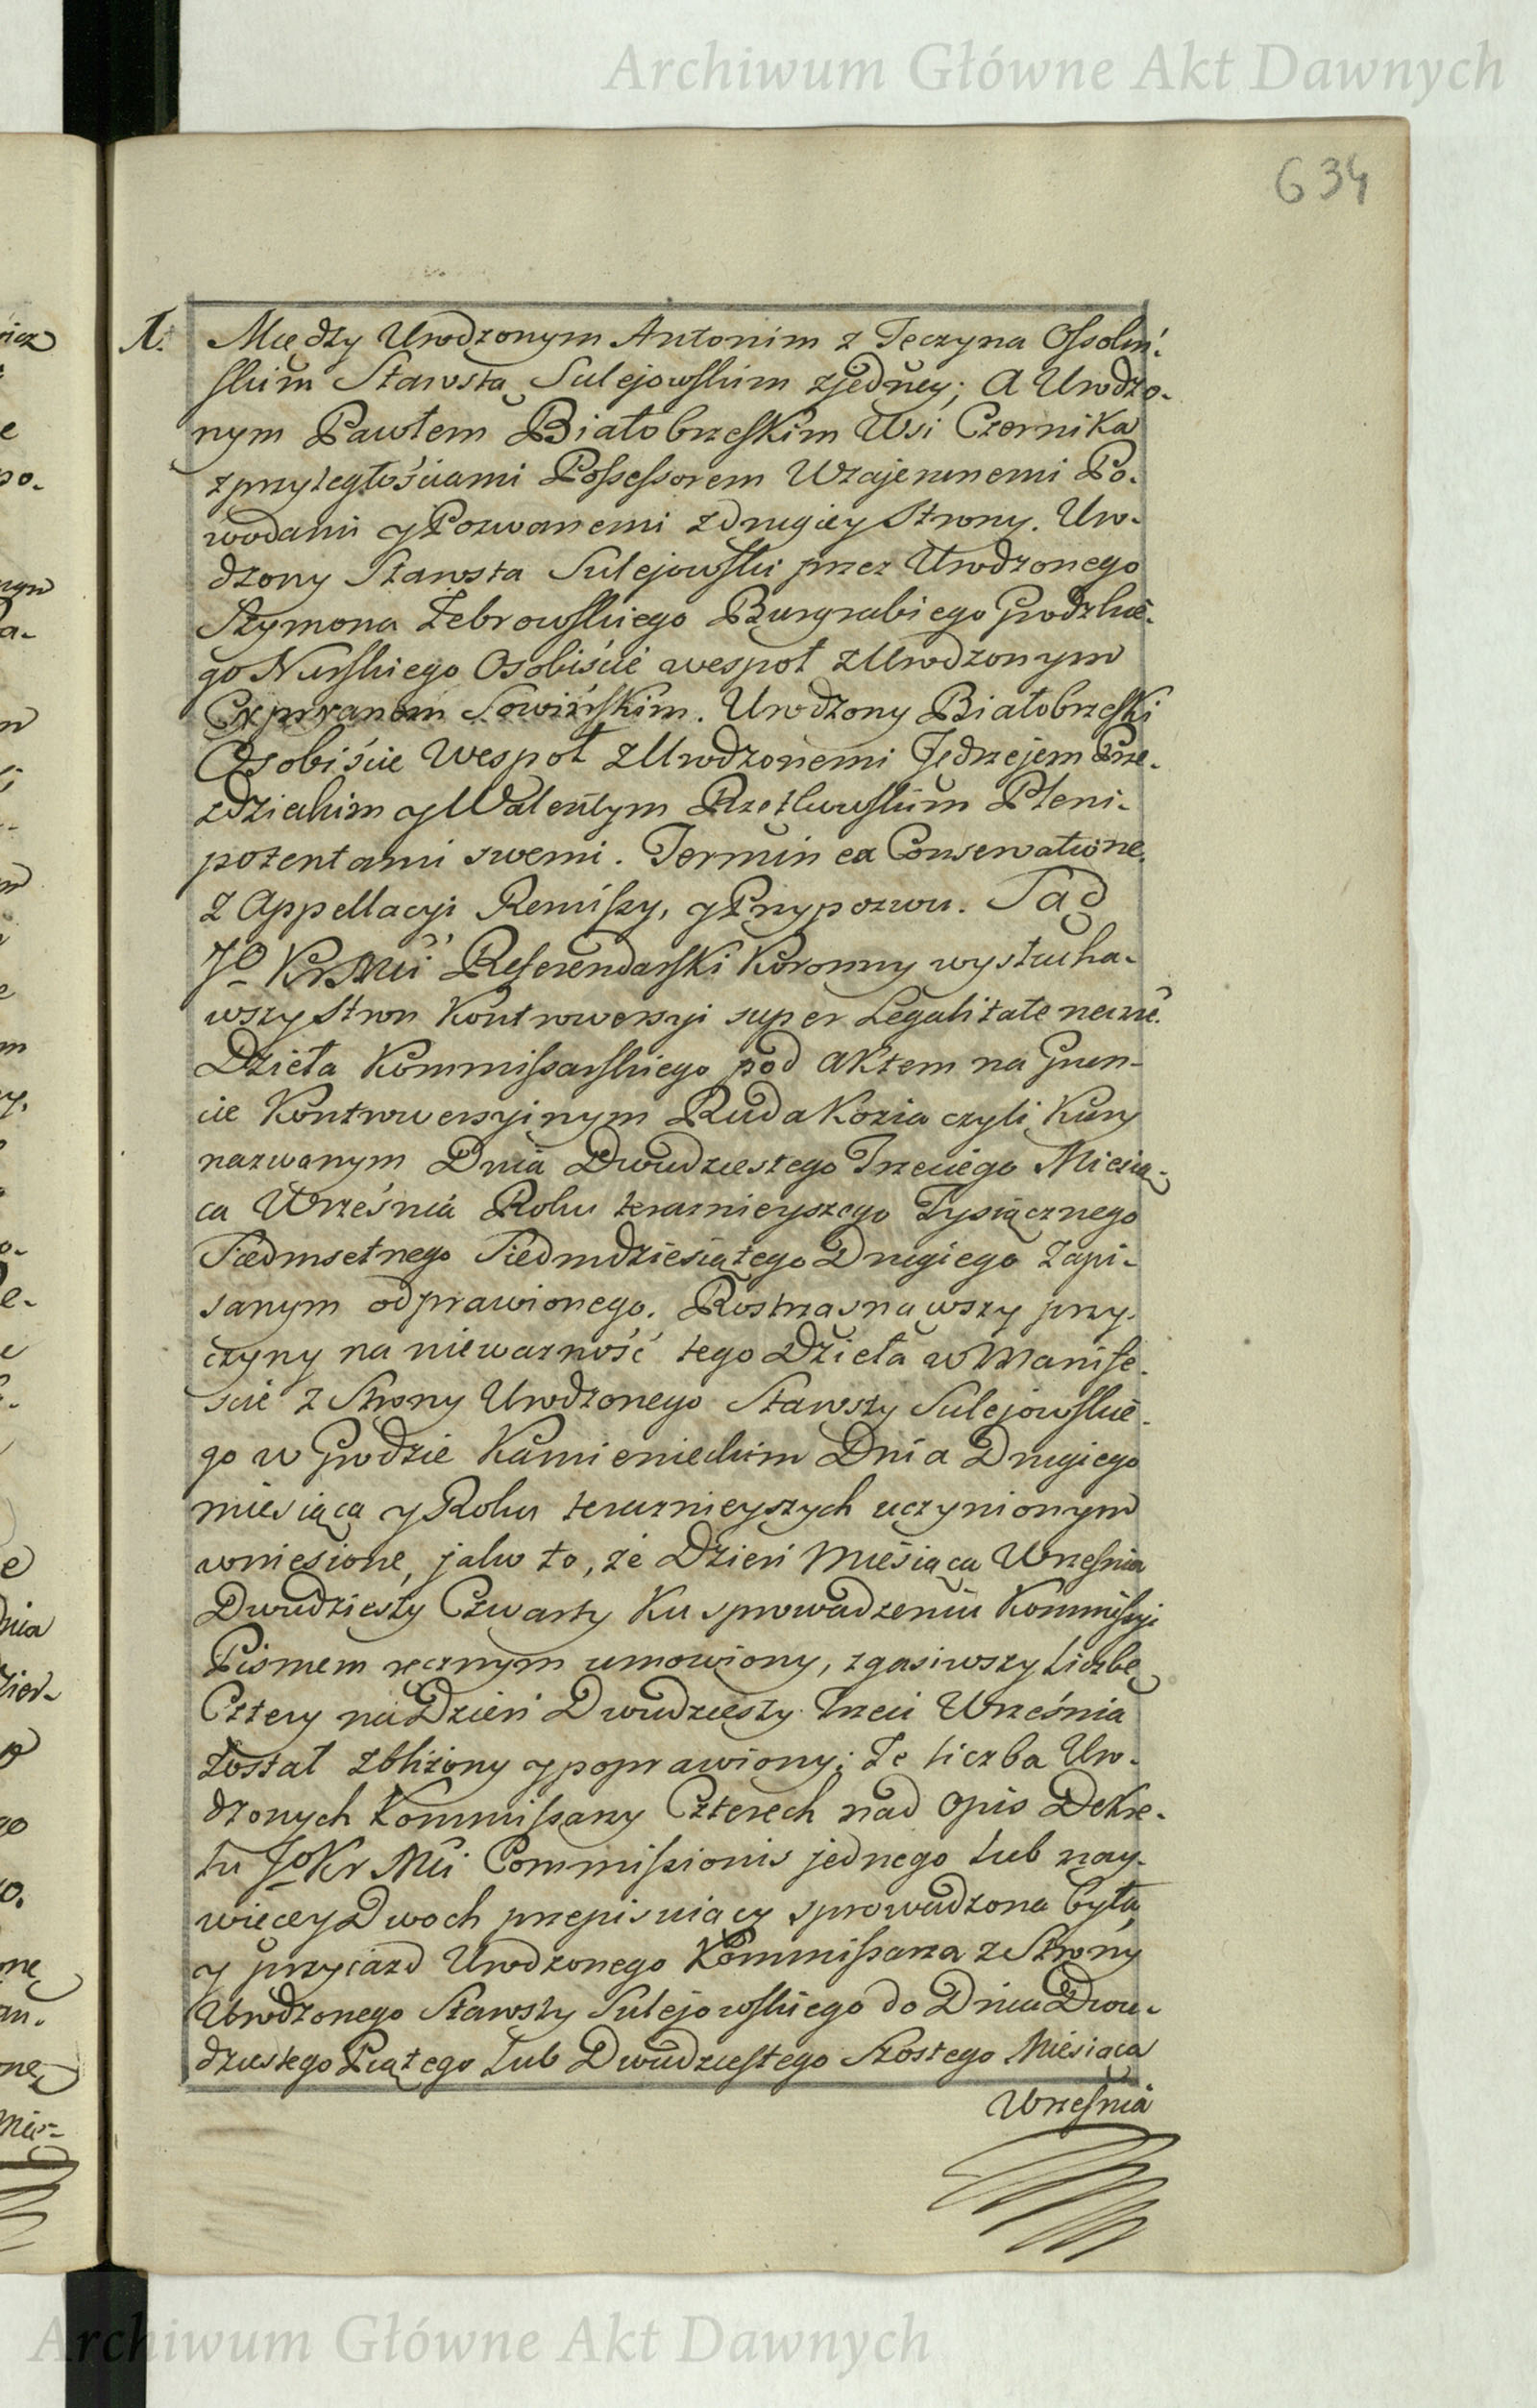 Archiwum Główne Akt Dawnych
634
1. Między Urodzonym Antonim z Tęczyna Ossoliń-
skim Starostą Sulejowskim zjedney; A Urodzo-
nym Pawłem Białobrzeskim Wsi Czernika
z przyległościami Possessorem Wzajemnemi Po-
wodami y Pozwanemi zdrugiey Strony. Uro-
dzony Starosta Sulejowski przez Urodzonego
Szymona Żebrowskiego Burgrabiego Grodzkie-
go Nurskiego Osobiście wespoł z Urodzonym
Cypryanem Sowińskim. Urodzony Białobrzeski
Osobiście Wespoł z Urodzonemi Jędrzejem Prze-
zdzieckim y Walentym Pleni-
potentami swemi. Termin ex Conservatione,
z Appellacyi Remissy, y Przypozwu. Sąd
Jo KrMci Referendarski Koronny wysłucha-
wszy Stron Kontrowersyi super Legalitate
Dzieła Kommissarskiego pod aktem na Grun-
cie Kontrowersyinym Ruda Kozia czyli Kury
nazwanym Dnia Dwudziestego Trzeciego Miesią-
ca Września Roku teraznieyszego Tysiącznego
Siedmsetnego Siedmdziesiątego Drugiego zapi-
sanym odprawionego. Rostrząsnąwszy przy-
czyny na nieważność tego Dzieła w Manife-
scie z Strony Urodzonego Starosty Sulejowskie-
go w Grodzie Kamienieckim Dnia Drugiego
miesiąca y Roku teraznieyszych uczynionym
wniesione, jako to, że Dzień Miesiąca Września
Dwudziesty Czwarty Ku sprowadzeniu Kommissyi
Pismem ręcznym umowiony, zgasiwszy liczbę
Cztery na Dzień Dwudziesty Trzeci Września
został zbliżony y poprawiony; że liczba Uro-
dzonych Kommissarzy Czterech nad opis Dekre-
tu Jo Kr Mci Commissionis jednego lub nay-
więcey Dwoch przepisuiący sprowadzona była,
y przyiazd Urodzonego Kommissarza z Strony
Urodzonego Starosty Sulejowskiego do Dnia Dwu-
dziestego Piątego lub Dwudziestego Szostego Miesiąca
Września
Archiwum Główne Akt Dawnych